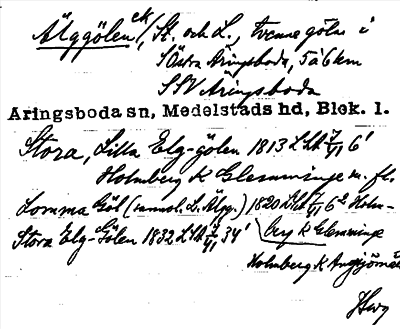 Älggölen, St. och L., tvenne gölar i
Södra Åringsboda, 5 à 6 km
SSV Åringsboda
Aringsboda sn, Medelstads hd, Blek. l.
Stora, Lilla Elg-gölen 1813 LSA 6'
Holmberg K Glemminge m. fl.
Lomma Göl (sannol. L. Älgg.) 1820 LSA 6² Holm-
Stora Elg-Gölen 1832 LSA 34' berg K Glemminge
Holmberg K